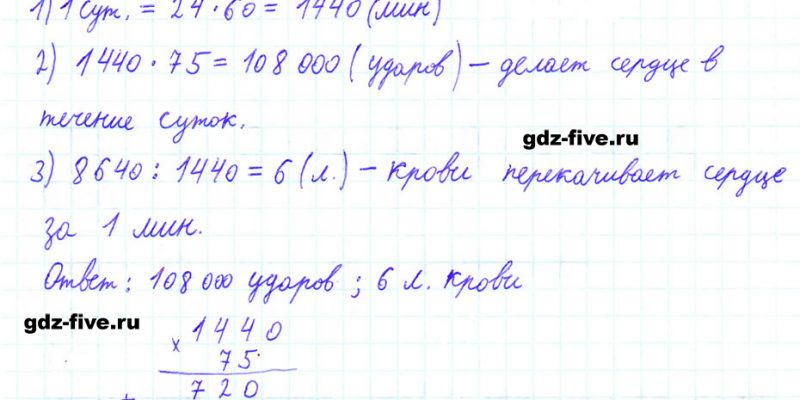 1) 1 сут. = 24 · 60 = 1440 (мин)
2) 1440 · 75 = 108 000 (ударов) – делает сердце в
течение суток.
gdz-five.ru
3) 8640 : 1440 = 6 (л.) – крови перекачивает сердце
за 1 мин.
Ответ: 108 000 ударов; 6 л. крови
gdz-five.ru
× 1440
75
+ 720